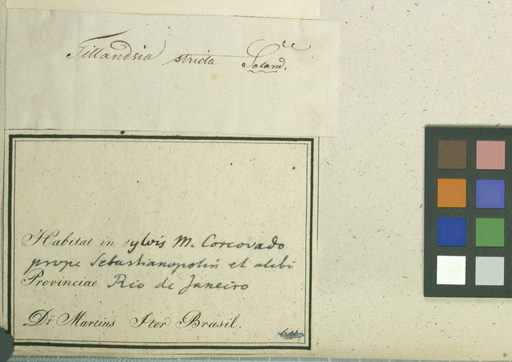 Tillandsia stricta Soland.
Habitat in sylvis M. Corcovado
prope Sebastianopolin et alibi
Provinciae Rio de Janeiro
Dr. Martius Iter Brasil.